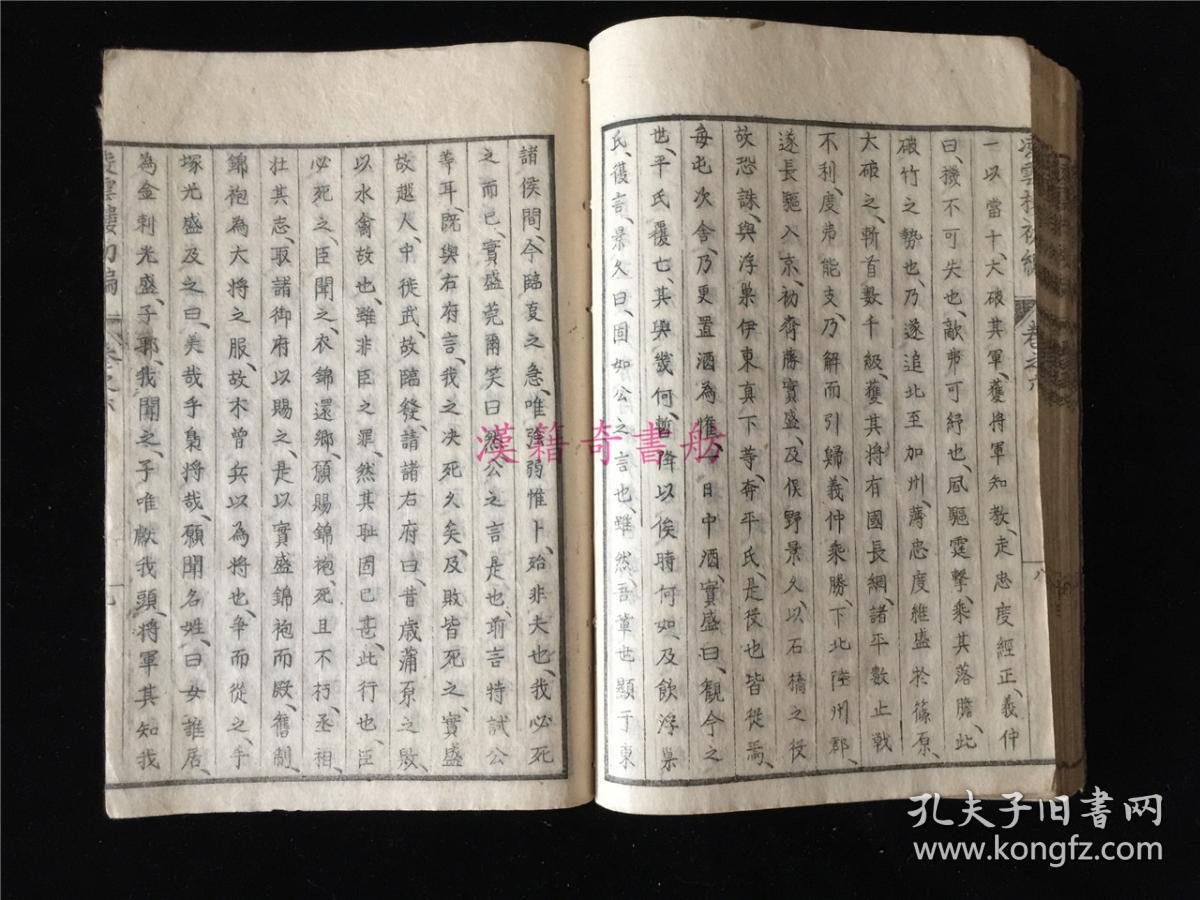 凌雲樓初編
卷之六
八
一以當十、大破其軍、獲將軍知教、走忠度經正、義仲
曰、機不可失也、敵弗可紓也、風驅霆擊、乘其落膽、此
破竹之勢也、乃遂追北至加州、薄忠度維盛於篠原、
大破之、斬首數千級、獲其將有國長綱諸平、數止戰
不利、度弗能支、乃解而引歸、義仲乘勝、下北陸州郡、
遂長驅入京、初齊藤實盛、及俣野景久、以石橋之役
故恐誅、與浮巢伊東真下等、奔平氏、是役也皆從焉、
每屯次舍、乃更置酒為懽、一日中酒、實盛曰、觀今之
世、平氏覆亡、其與幾何、暫降以俟時何如、及飲浮巢
氏、復言、景久曰、固如公之言也、雖然、吾輩世顯于東
諸侯間、今臨夐之急、唯強弱惟卜、殆非夫也、我必死
之而已、實盛莞爾笑曰、然公之言是也、前言特試公
等耳、既與右府言、我之決死久矣、及敗皆死之、實盛
故越人、中徙武、故臨發、請諸右府曰、昔歲蒲原之敗、
以水禽故也、雖非臣之罪、然其恥固已甚、此行也、臣
必死之、臣聞之、衣錦還鄉、願賜錦袍、死且不朽、丞相
壯其志、取諸御府以賜之、是以實盛錦袍而殿、舊制、
錦袍為大將之服、故木曾兵以為將也、爭而從之、手
塚光盛及之曰、美哉乎梟將哉、願聞名姓、曰女誰居、
為金刺光盛、子耶、我聞之、子唯獻我頭、將軍其知我
凌雲樓初編
卷之六
九
漢籍奇書舫
孔夫子旧书网
www.kongfz.com